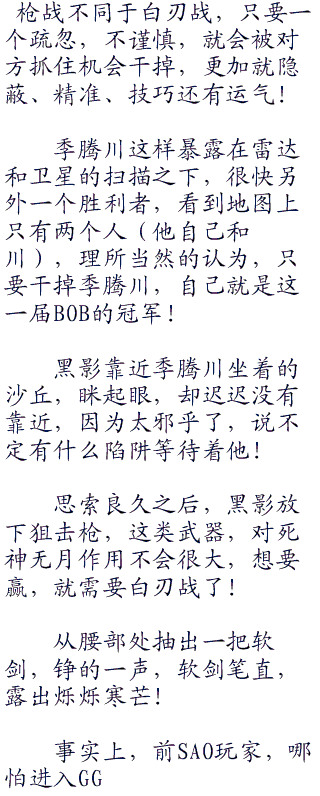 枪战不同于白刃战，只要一
个疏忽，不谨慎，就会被对
方抓住机会干掉，更加就隐
蔽、精准、技巧还有运气！
季腾川这样暴露在雷达
和卫星的扫描之下，很快另
外一个胜利者，看到地图上
只有两个人（他自己和
川），理所当然的认为，只
要干掉季腾川，自己就是这
一届BOB的冠军！
黑影靠近季腾川坐着的
沙丘，眯起眼，却迟迟没有
靠近，因为太邪乎了，说不
定有什么陷阱等待着他！
思索良久之后，黑影放
下狙击枪，这类武器，对死
神无月作用不会很大，想要
赢，就需要白刃战了！
从腰部处抽出一把软
剑，铮的一声，软剑笔直，
露出烁烁寒芒！
事实上，前SAO玩家，哪
怕进入GG